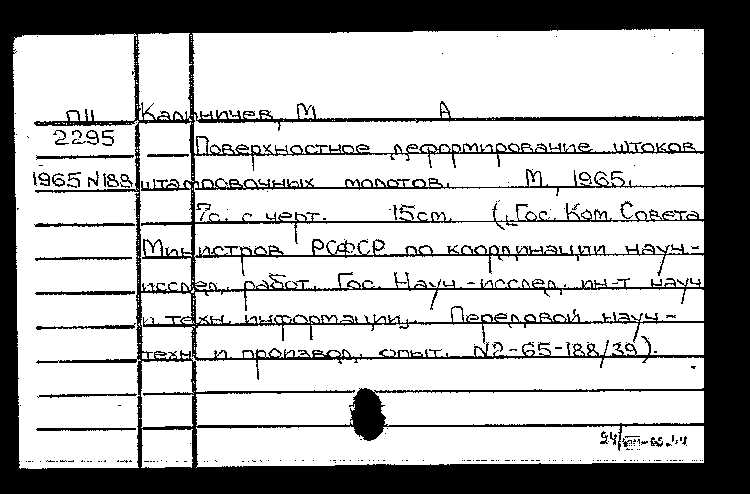 П11 Калиничев, М А
2295 Поверхностное деформирование штоков
1965 №188 штамповочных молотов. М., 1965.
7с. с черт. 15см. (Гос. Ком. Совета
Министров РСФСР по координации науч.-
исслед. работ. Гос. Науч.-исслед. ин-т науч
и техн. информации. Передовой науч.-
техн и производ. опыт. №2-65-188/39).